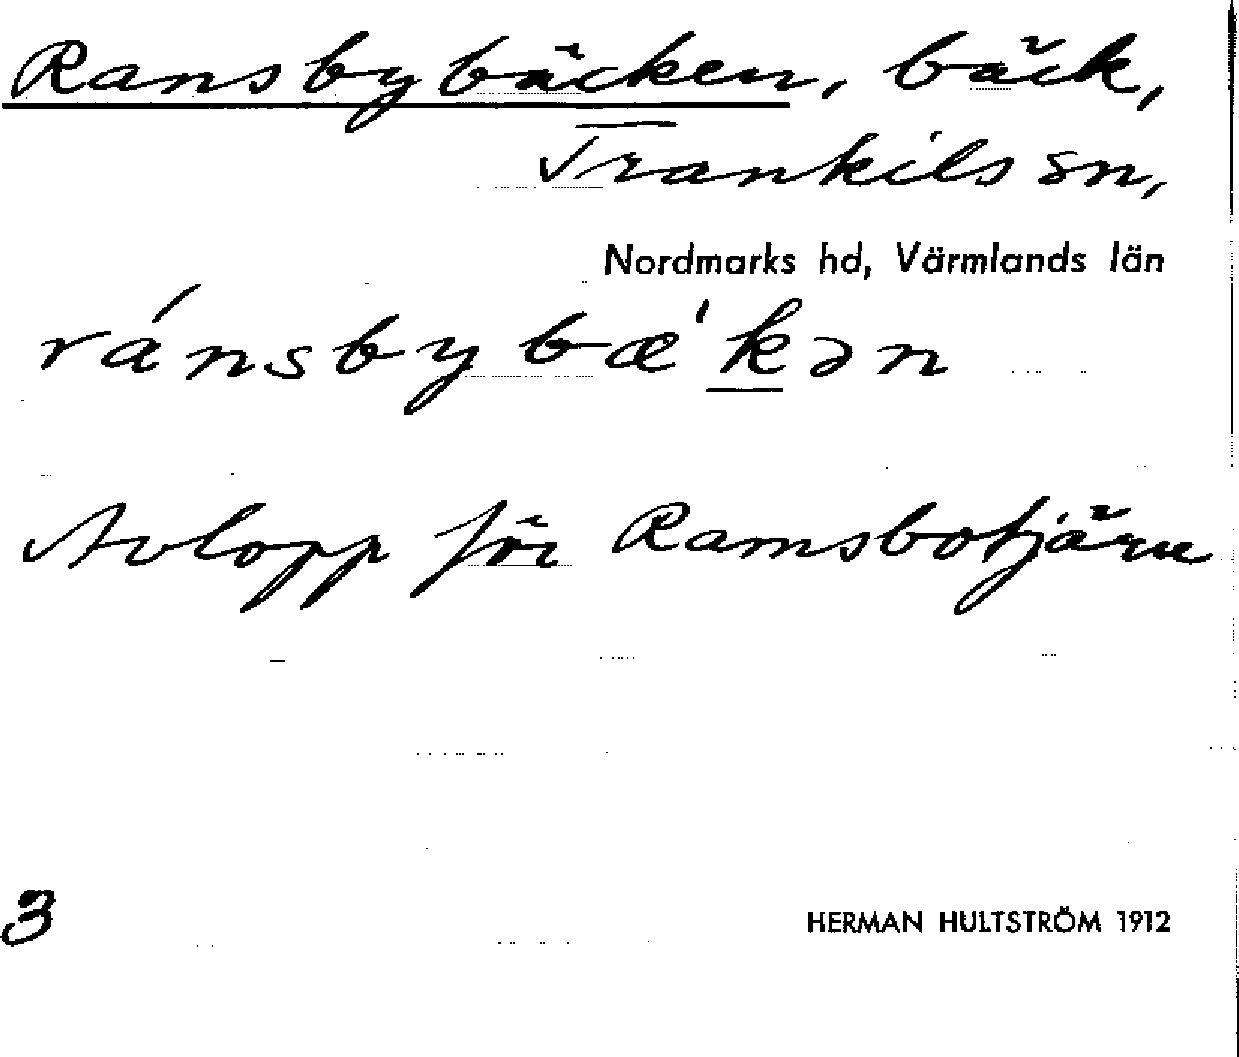 Ransbybäcken, bäck,
Trankils sn,
Nordmarks hd, Värmlands län
ránsbybæ'kən
Avlopp för Ramsbotjärn
3
HERMAN HULTSTRÖM 1912